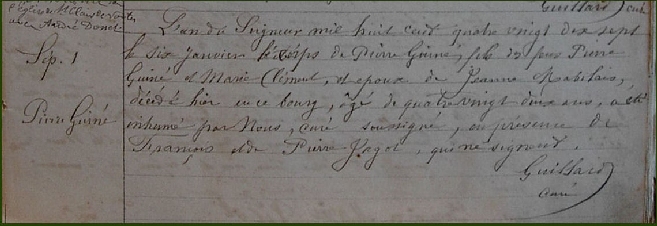 Guillard curé
Sép. 1
Pierre Guiné
L'an du Seigneur mil huit cent quatre vingt dix sept
le six Janvier le corps de Pierre Guiné, fils de feus Pierre
Guiné et Marie Clément, et époux de Jeanne Rabelais,
décédé hier en ce bourg, âgé de quatre vingt deux ans, a été
inhumé par Nous, curé soussigné, en présence de
François et de Pierre Jagot, qui ne signent.
Guillard
curé